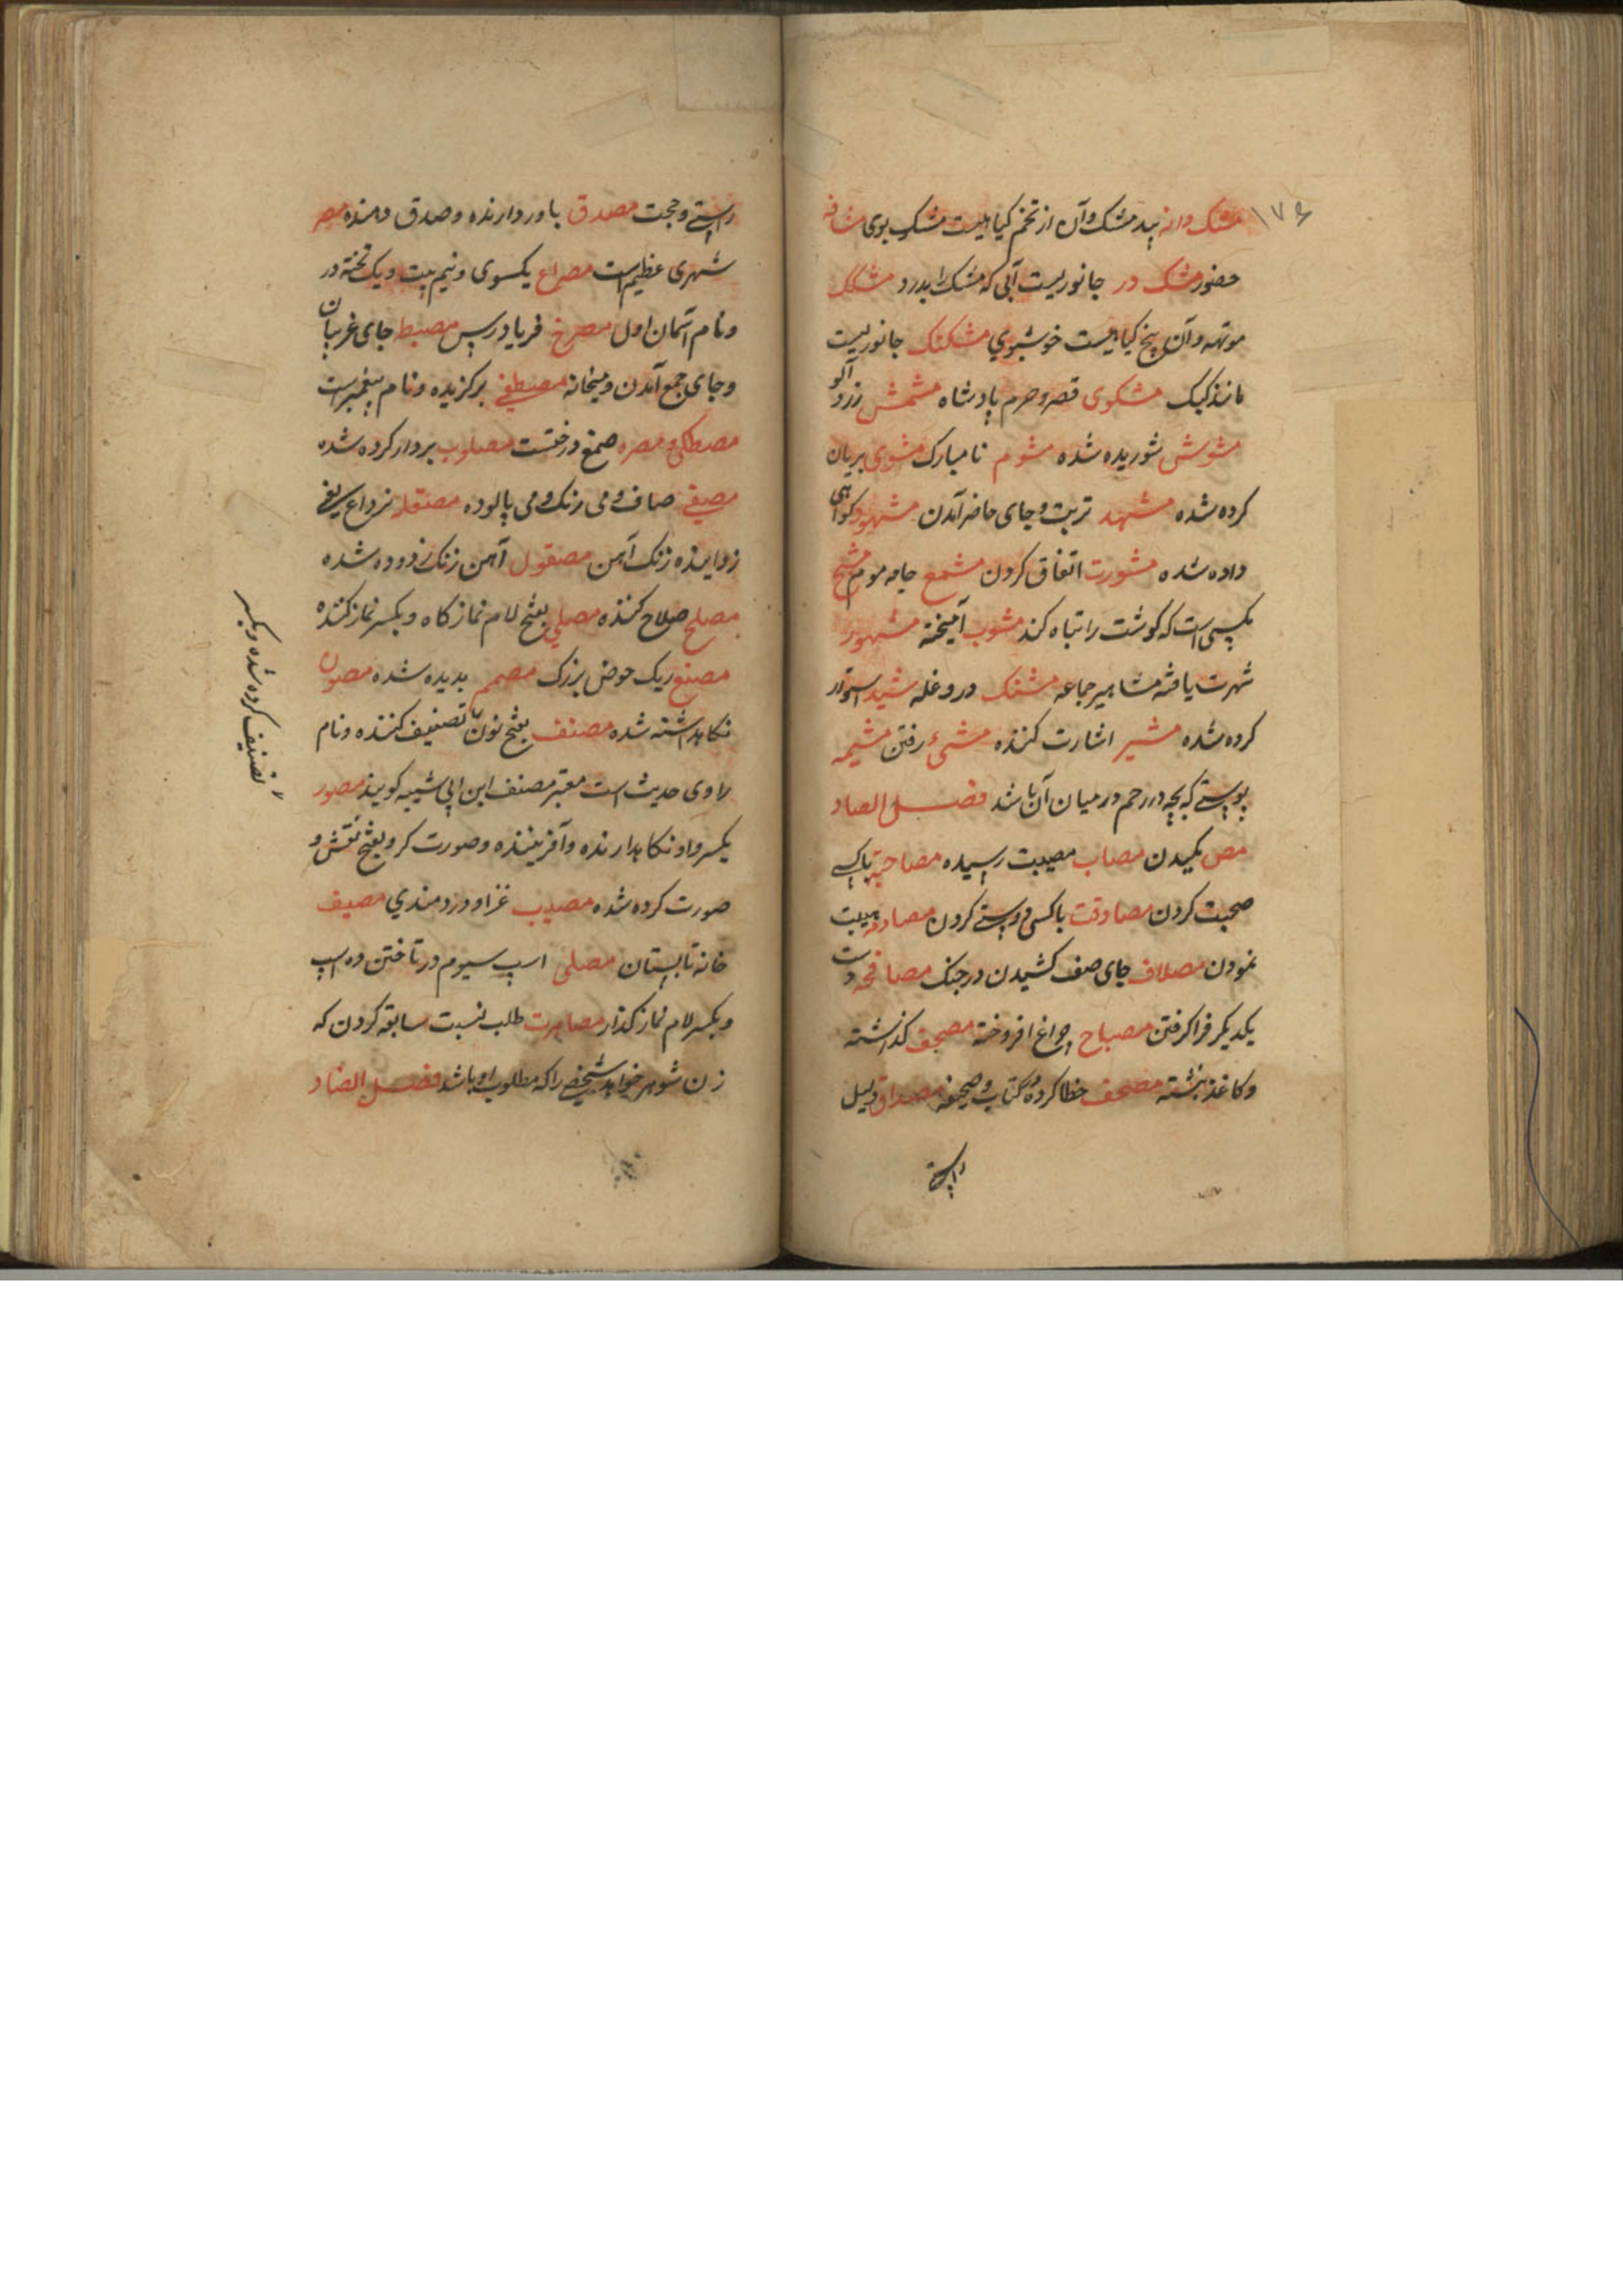 ۱۷۶
مشک دانه بید مشک وآن از تخم کیاهیست مشک بوی مشافه
حضور مشک در جانوریست آبی که مشک را بدرد مشکک
موتهه وآن بیخ کیاهیست خوشبوی مشکنک جانوریست
مانند کبک مشکوی قصر وحرم پادشاه مشمش زرد آلو
مشوش شوریده شده مشوم نا مبارک مشوی بریان
کرده شده مشهد تربت وجای حاضر آمدن مشهود کواهی
داده شده مشورت اتفاق کردن مشمع جامه موم
مکسی است که کوشت را تباه کند مشوب آمیخته مشهور
شهرت یافته مشاهیر جماعه مشنک در وغله مشید استوار
کرده شده مشیر اشارت کننده مشیء رفتن مشیمه
پوستی که بچه در رحم در میان آن باشد فصل الصاد
مص مکیدن مصاب مصیبت رسیده مصاحبة باکسی
صحبت کردن مصادقت با کسی دوستی کردن مصادمه هیبت
نمودن مصاف جای صف کشیدن در جنک مصافحه دست
یکدیکر فرا کرفتن مصباح چراغ افروخته مصحف کذاشته
وکاغذ نبشته مصحف خطا کرده وکتاب وصحیفه مصداق دلیل
راستی
راستی وحجت مصدق باور دارنده وصدق دهنده مصر
شهری عظیم است مصراع یکسوی ونیم بیت ویک تخته در
ونام آسمان اول مصرخ فریاد رس مصبط جای غریبان
وجای جمع آمدن ومیخانه مصطفی برکزیده ونام پیغمبر است
مصطکی ومصره صمغ درختست مصلوب بر دار کرده شده
مصفی صاف ومی رنک ومی پالوده مصقله
زداینده زنک آهن مصقول آهن زنک زدوده شده
مصلح صلاح کننده مصلی بفتح لام نماز کاه وبکسر نماز کننده
مصنع ریک حوض بزرک مصمم بدیده شده مصون
نکاهداشته شده مصنف بفتح نون تصنیف کننده ونام
راوی حدیث است معتبر مصنف ابن ابی شیبه کویند مصور
بکسر واو نکاهدارنده وآفریننده وصورت کر وبفتح نقش و
صورت کرده شده مصیب غزا ودردمندی مصیف
خانه تابستان مصلی اسپ سیوم در تاختن ده اسپ
وبکسر لام نماز کذار مصاهرت طلب نسبت سابقه کردن که
زن شوهر خواهد شخصی را که مطلوب او باشد فصل الضاد
تصنیف کرده شده وبکسر